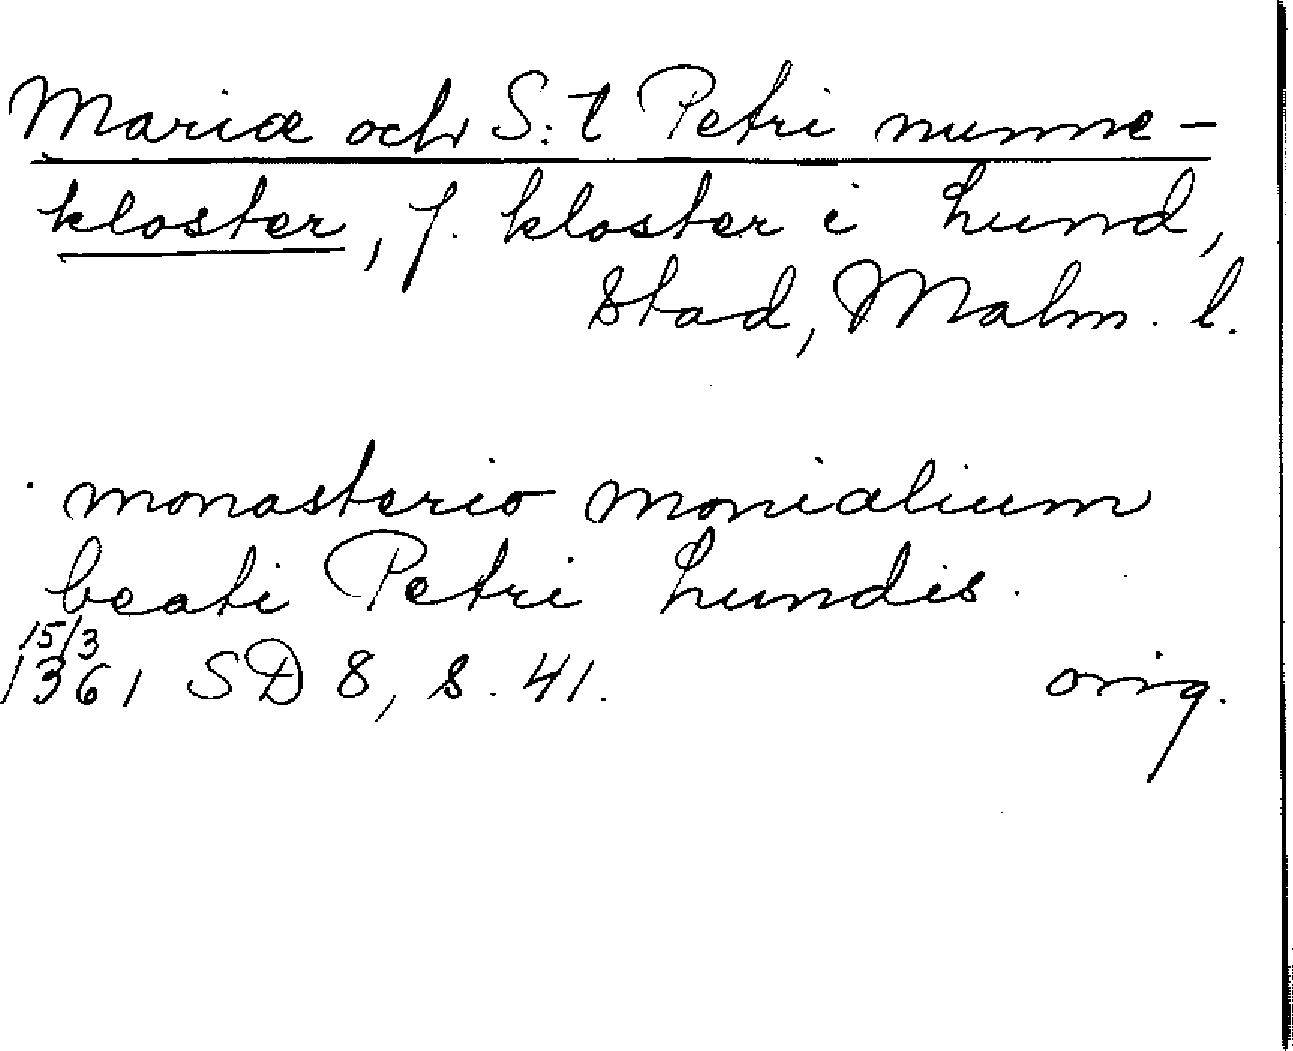 Mariæ och S:t Petri nunne-
kloster, f. kloster i Lund,
stad, Malm. l.
monasterio monialium
beati Petri Lundis.
15/3
1361 SD 8, s. 41. orig.